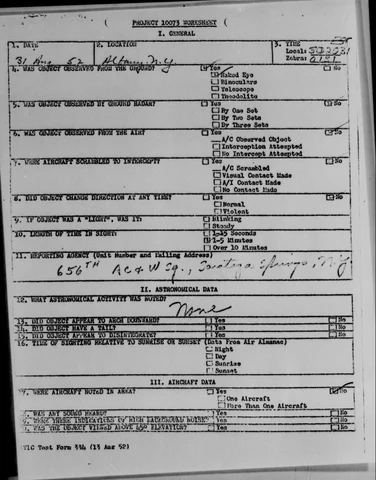 PROJECT 10073 WORKSHEET
I. GENERAL
1. DATE
2. LOCATION
3. TIME
31 Aug 52
Albany N.Y.
Local:
Zebra: 0121
4. WAS OBJECT OBSERVED FROM THE GROUND? Yes No
Naked Eye
Binoculars
Telescope
Theodolite
5. WAS OBJECT OBSERVED BY GROUND RADAR? Yes No
By One Set
By Two Sets
By Three Sets
6. WAS OBJECT OBSERVED FROM THE AIR? Yes No
A/C Observed Object
Interception Attempted
No Intercept Attempted
7. WERE AIRCRAFT SCRAMBLED TO INTERCEPT? Yes No
A/C Scrambled
Visual Contact Made
A/I Contact Made
No Contact Made
8. DID OBJECT CHANGE DIRECTION AT ANY TIME? Yes No
Normal
Violent
9. IF OBJECT WAS A "LIGHT", WAS IT: Blinking
Steady
10. LENGTH OF TIME IN SIGHT: 1-15 Seconds
1-5 Minutes
Over 10 Minutes
11. REPORTING AGENCY (Unit Number and Mailing Address)
656TH AC & W Sq., Saratoga Springs, N.Y.
II. ASTRONOMICAL DATA
12. WHAT ASTRONOMICAL ACTIVITY WAS NOTED?
None
13. DID OBJECT APPEAR TO ARCH DOWNWARD? Yes No
14. DID OBJECT HAVE A TAIL? Yes No
15. DID OBJECT APPEAR TO DISINTEGRATE? Yes No
16. TIME OF SIGHTING RELATIVE TO SUNRISE OR SUNSET (Data From Air Almanac)
Night
Day
Sunrise
Sunset
III. AIRCRAFT DATA
7. WERE AIRCRAFT NOTED IN AREA? Yes No
One Aircraft
More Than One Aircraft
8. WAS ANY SOUND HEARD? Yes No
9. WERE THERE INDICATIONS OF HIGH BACKGROUND NOISE? Yes No
WAS THE OBJECT VIEWED ABOVE 45° ELEVATION? Yes No
TIC Test Form 334 (13 Aug 52)